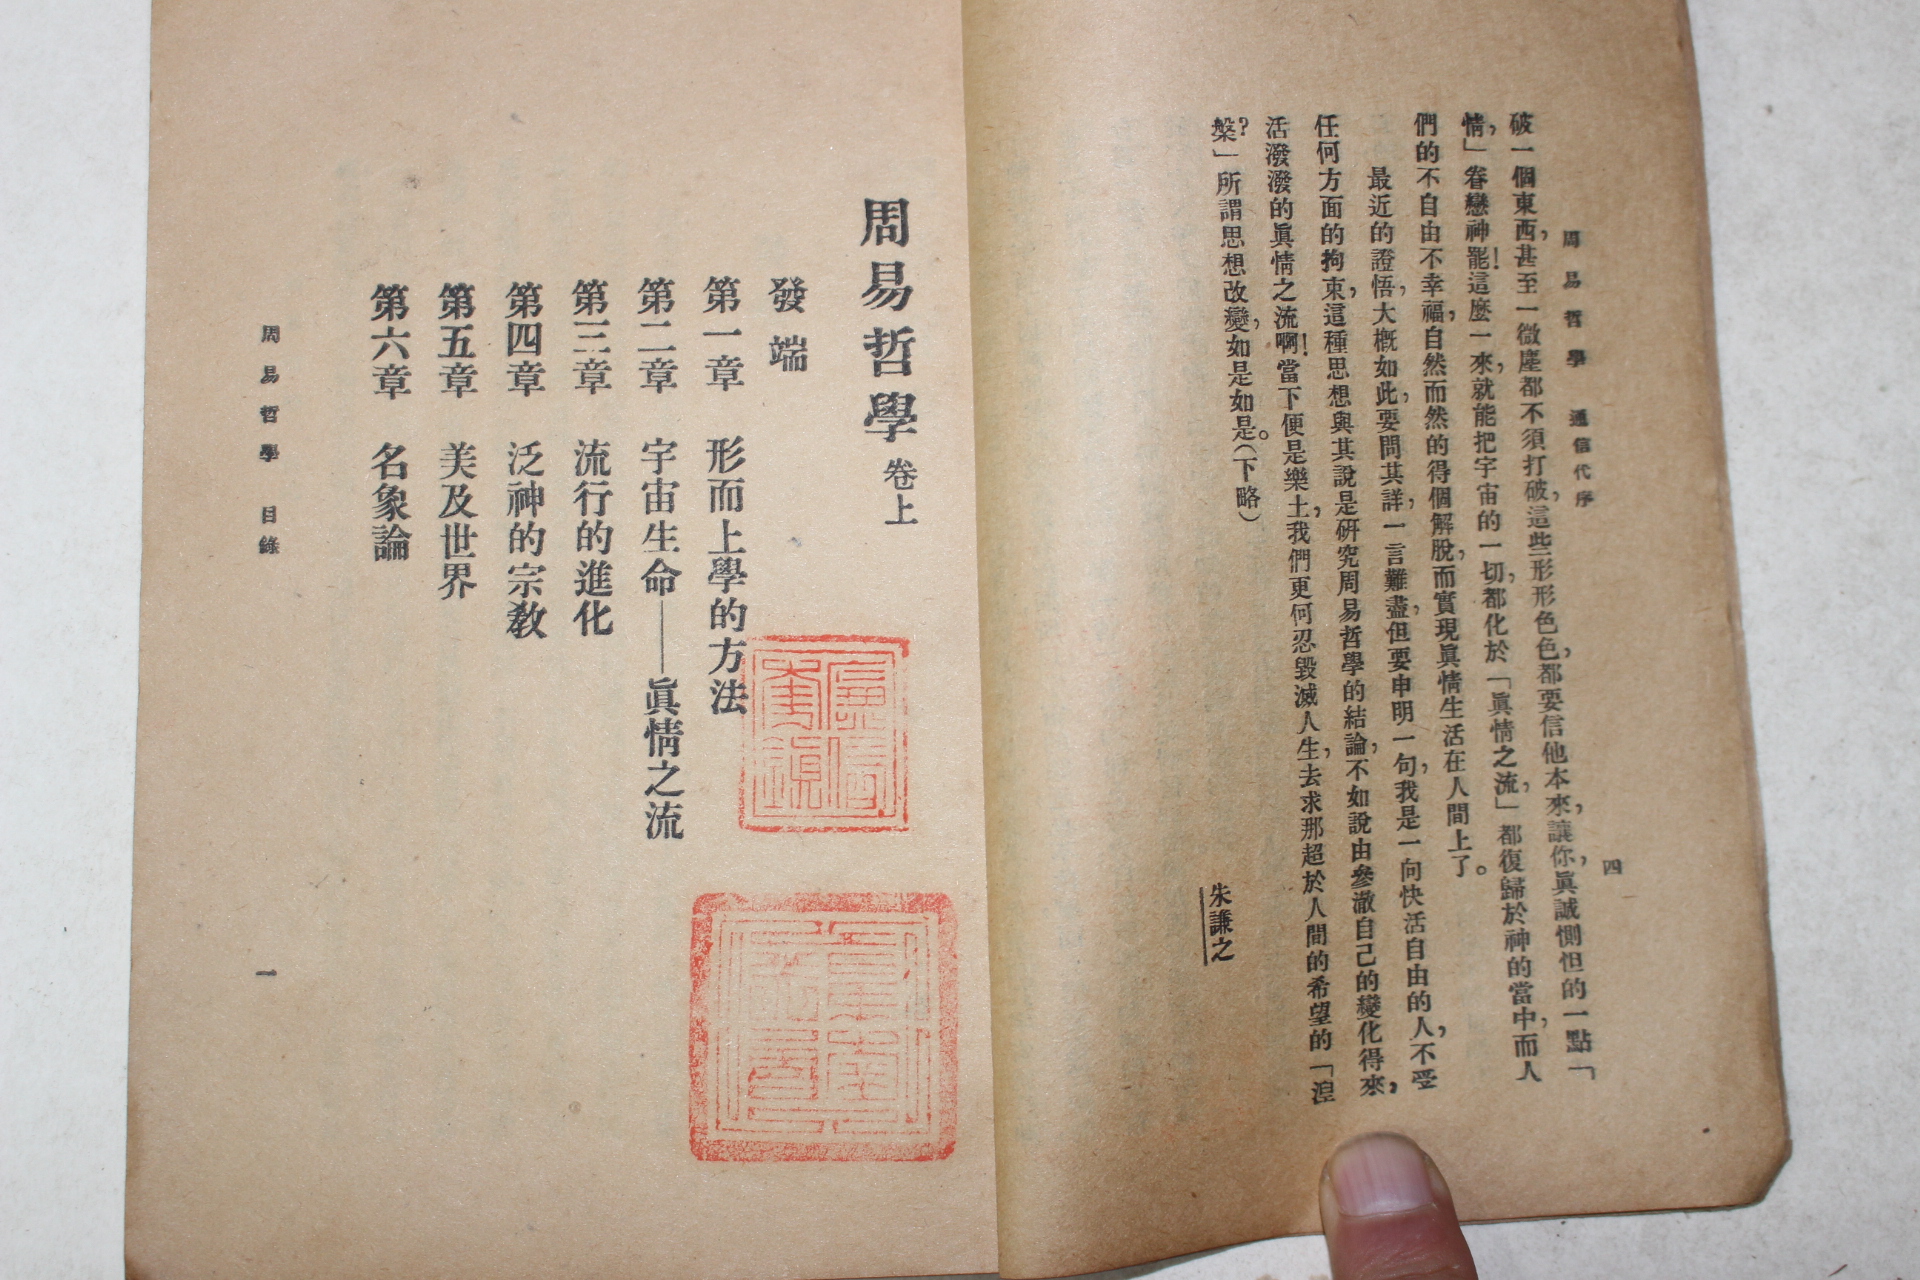 周易哲學　通信代序
四
破一個東西，甚至一微塵都不須打破，這些形形色色，都要信他本來，讓你，眞誠惻怛的一點「
情，」眷戀神罷！這麼一來，就能把宇宙的一切，都化於「眞情之流，」都復歸於神的當中，而人
們的不自由不幸福，自然而然的得個解脫，而實現眞情生活在人間上了。
最近的證悟，大概如此，要問其詳，一言難盡，但要申明一句，我是一向快活自由的人，不受
任何方面的拘束，這種思想與其說是研究周易哲學的結論，不如說由參澈自己的變化得來，
活潑潑的眞情之流啊！當下便是樂土，我們更何忍毀滅人生，去求那超於人間的希望的「湼
槃？」所謂思想改變，如是如是。（下略）
朱謙之
周易哲學 卷上
發端
第一章　形而上學的方法
第二章　宇宙生命——眞情之流
第三章　流行的進化
第四章　泛神的宗教
第五章　美及世界
第六章　名象論
周易哲學　目錄
一